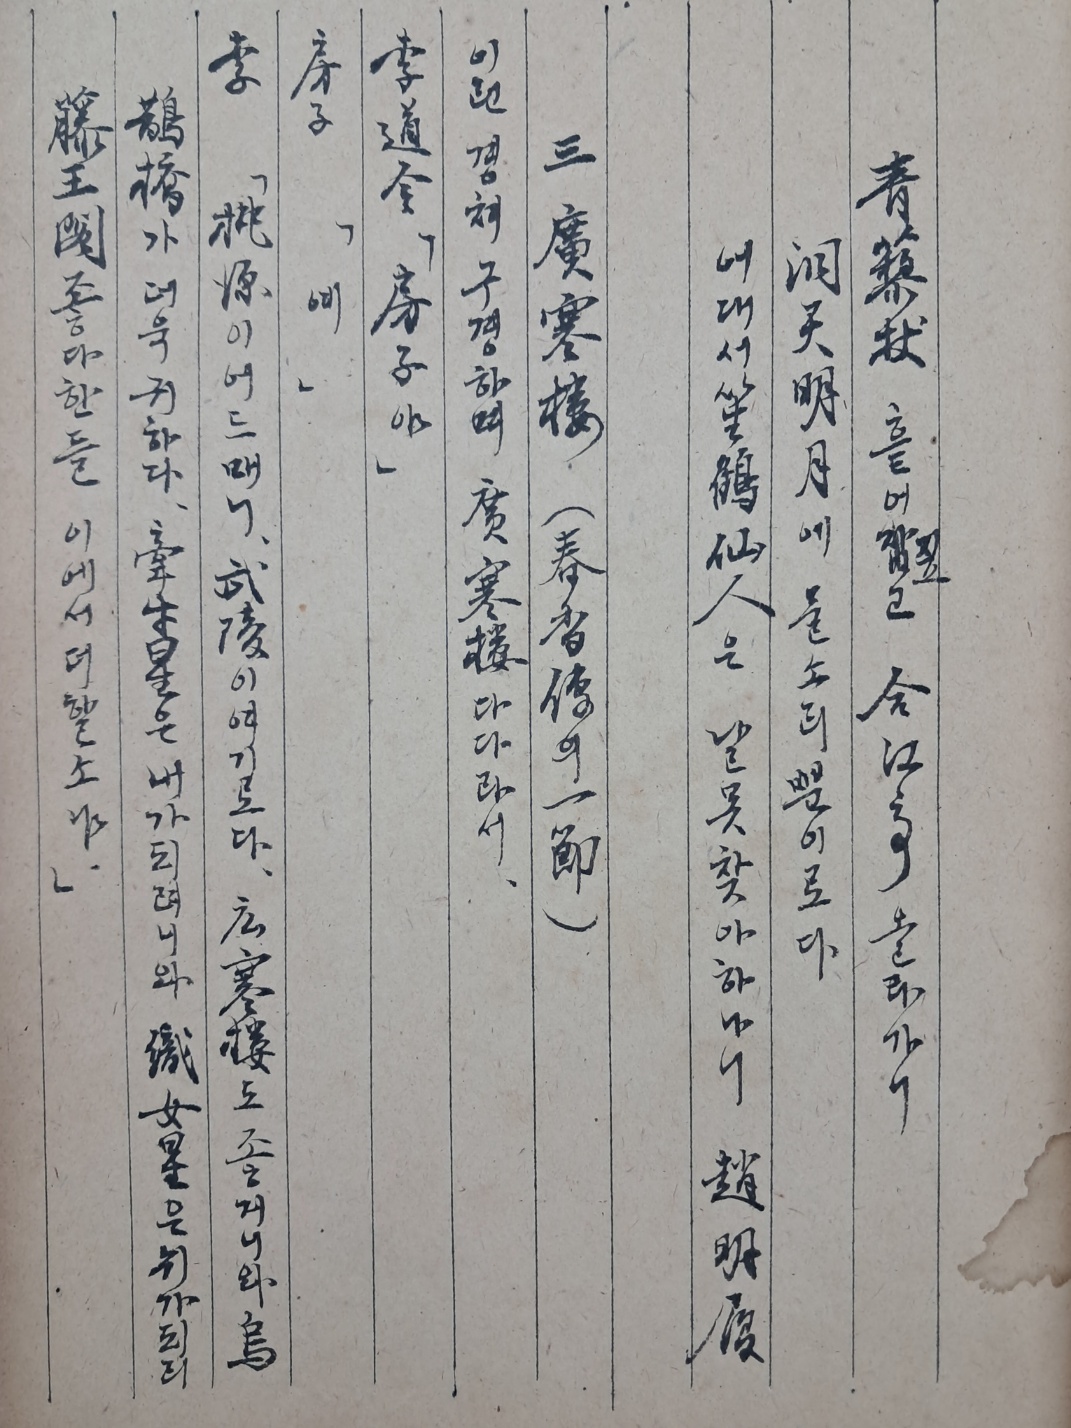 青藜杖 흗어 짚고 合江亭 올라가니
洞天明月에 물소리뿐이로다
어대서 笙鶴仙人은 날 못찾아하나니 趙明履
三 廣寒樓 (春香傳의 一節)
이런 경처 구경하며 廣寒樓 다다라서、
李道令「房子야」
房子 「예」
李 「桃源이어드매니、武陵이여기로다、広寒樓도 죤거니와 烏
鵲橋가 더욱 귀하다、牽牛星은 내가되려니와 織女星은 뉘가되리
滕王閣 좋다한들 이에서 더할소냐、」